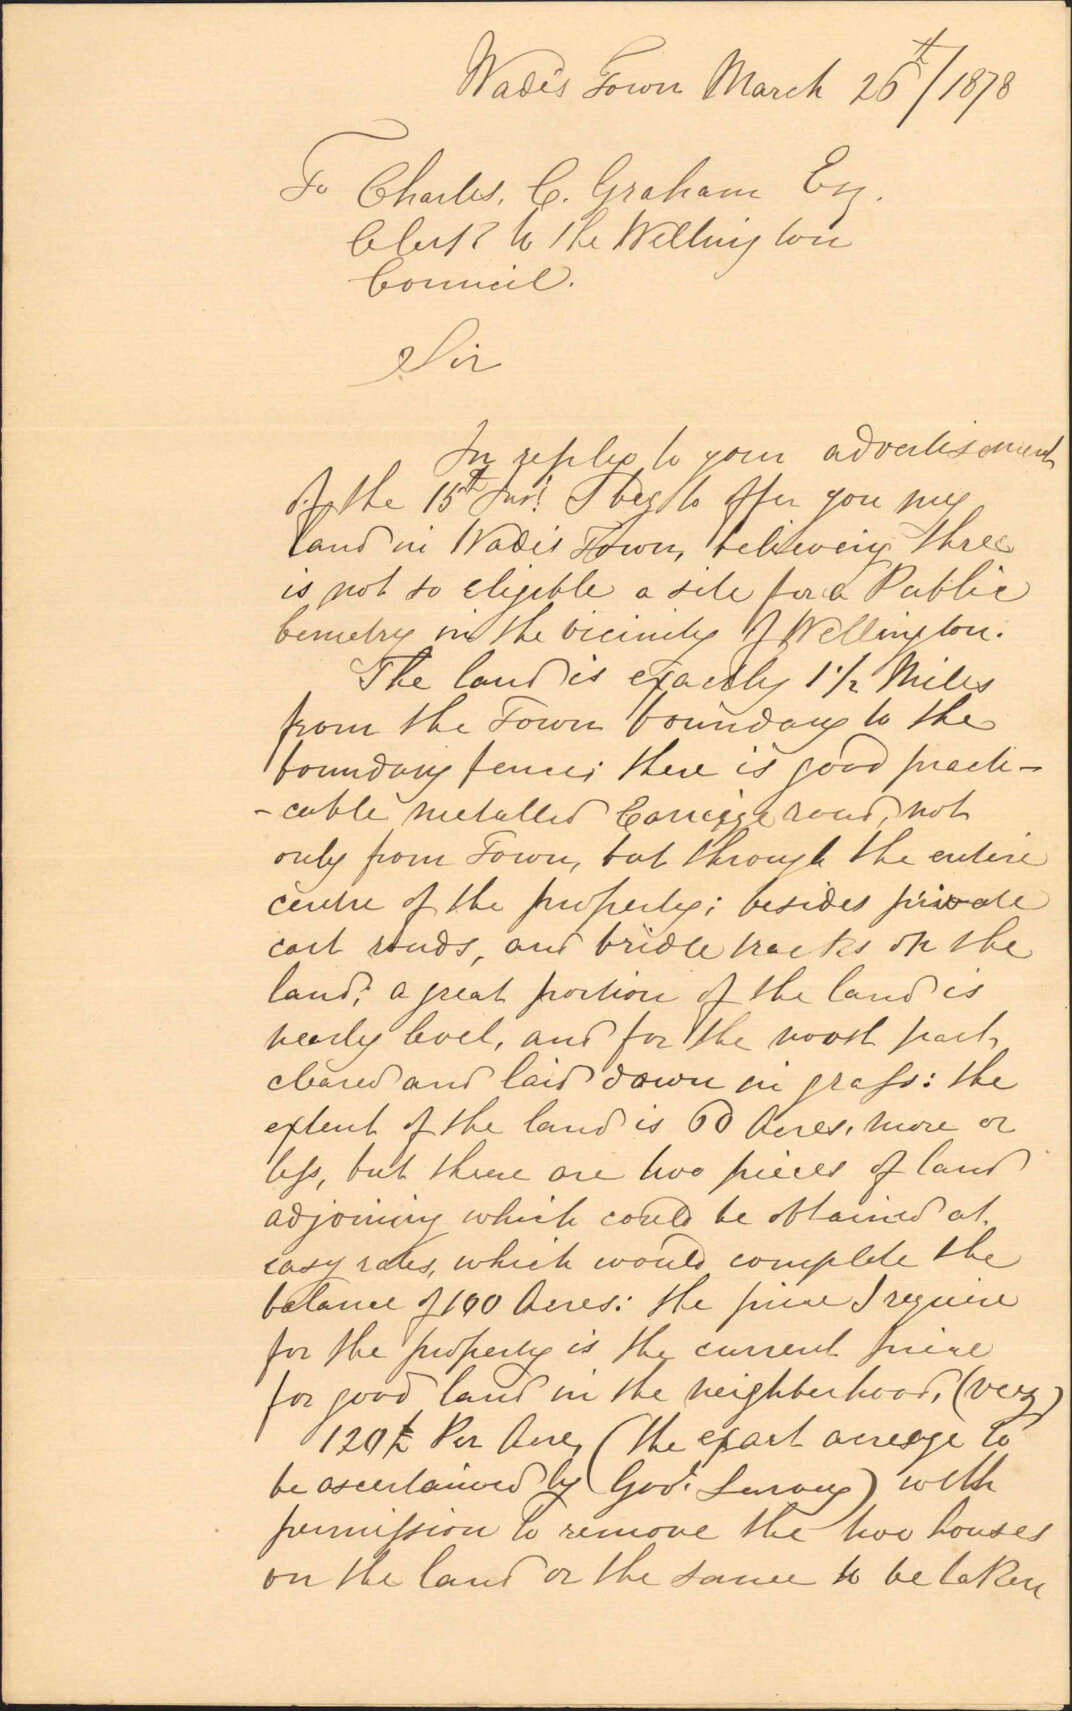 Wade's Town March 26th/1878
To Charles. C. Graham Esq.
Clerk to the Wellington
Council.
Sir
In reply to your advertisement
of the 15th Inst. I beg to offer you my
land in Wade's Town, believing there
is not so eligible a site for a Public
Cemetry in the vicinity of Wellington.
The land is exactly 1 1/2 Miles
from the Town boundary to the
boundary fence; there is good practi-
-cable metalled Carriage road, not
only from Town, but through the entire
centre of the property; besides private
cart roads, and bridle tracks on the
land; a great portion of the land is
nearly level, and for the most part
cleared and laid down in grass: the
extent of the land is 60 Acres, more or
less, but there are two pieces of land
adjoining which could be obtained at
easy rates, which would complete the
balance of 100 Acres: the price I require
for the property is the current price
for good land in the neighborhood, (vez)
120£ Per Acre, (the exact acreage to
be ascertained by Govt. Survey) with
permission to remove the two houses
on the land or the same to be taken